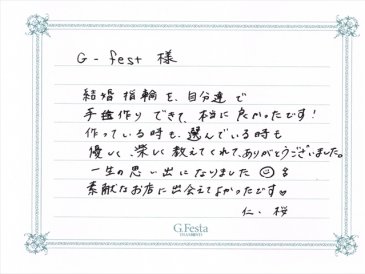 G-fest 様
結婚指輪を、自分達で
手作りできて、本当に良かったです！
作っている時も、選んでいる時も
優しく、楽しく教えてくれて、ありがとうございました。
一生の思い出になりました
素敵なお店に出会えてよかったです♡
仁・桜
G.Festa